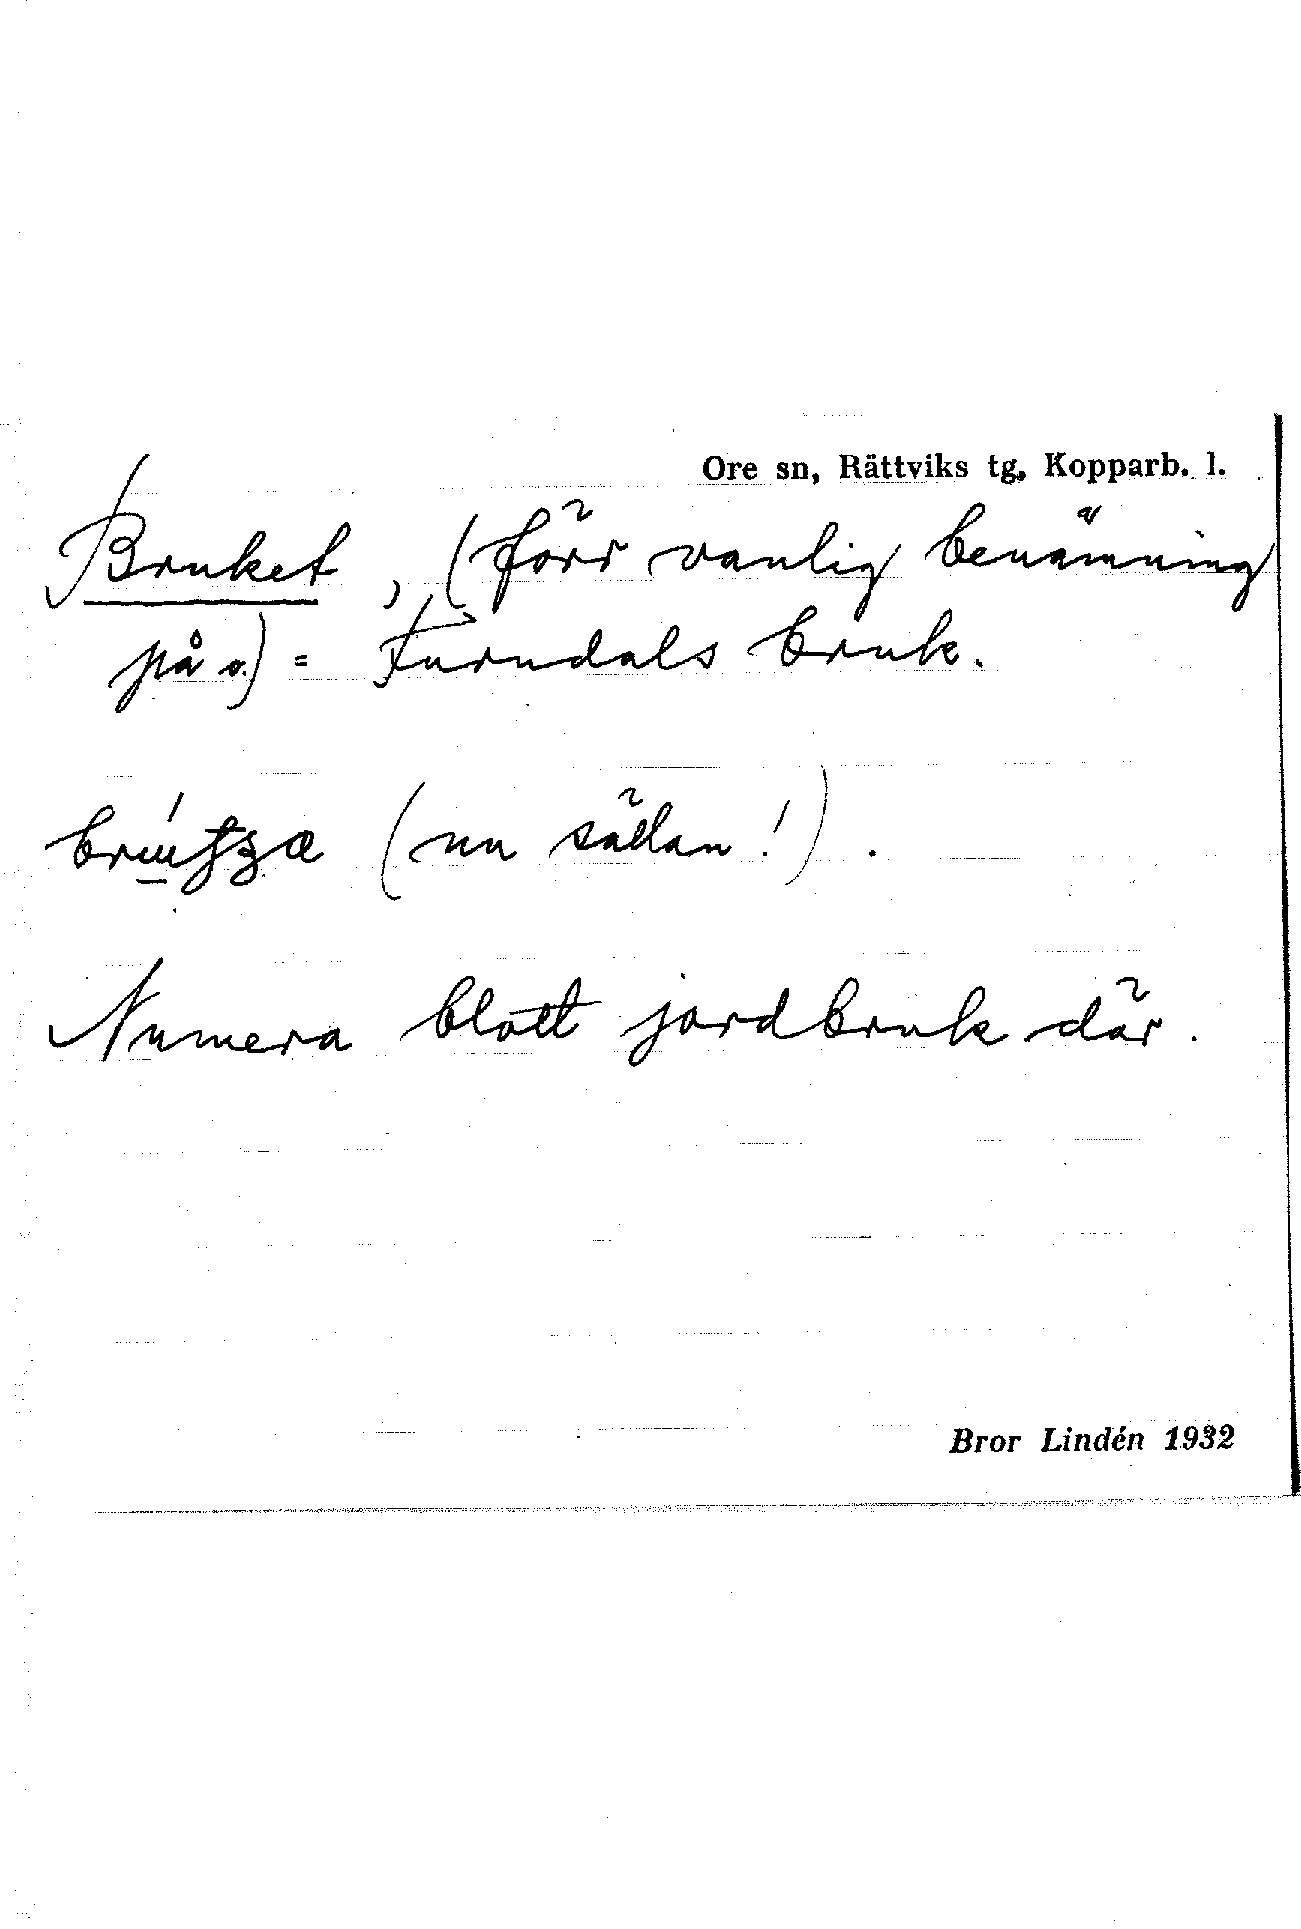 Ore sn, Rättviks tg, Kopparb. l.
Bruket, (förr vanlig benämning
på o.) = Furudals bruk.
(nu sällan!).
Numera blott jordbruk där.
Bror Lindén 1932